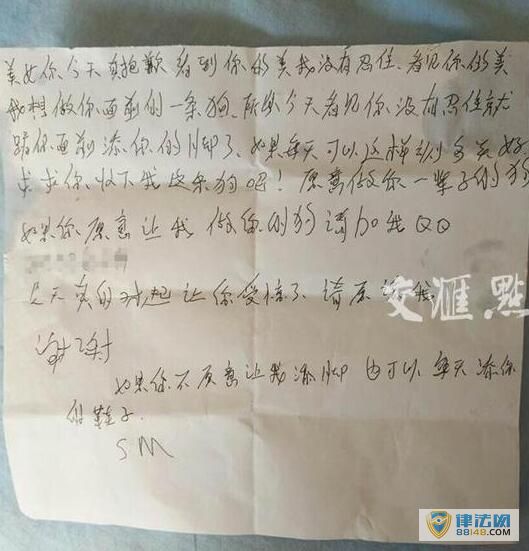 美女你今天真抱歉看到你的美我没有忍住.看见你的美
我想做你面前的一条狗.所以今天看见你没有忍住就
跪你面前添你的脚了.如果每天可以这样那多美好
求求你收下我这条狗吧!愿意做你一辈子的狗
如果你愿意让我做你的狗请加我QQ
今天真的对起让你受惊了请原谅我
谢谢
如果你不愿意让我添脚也可以每天添你
的鞋子.
SM
交汇點
律法网
88148.COM